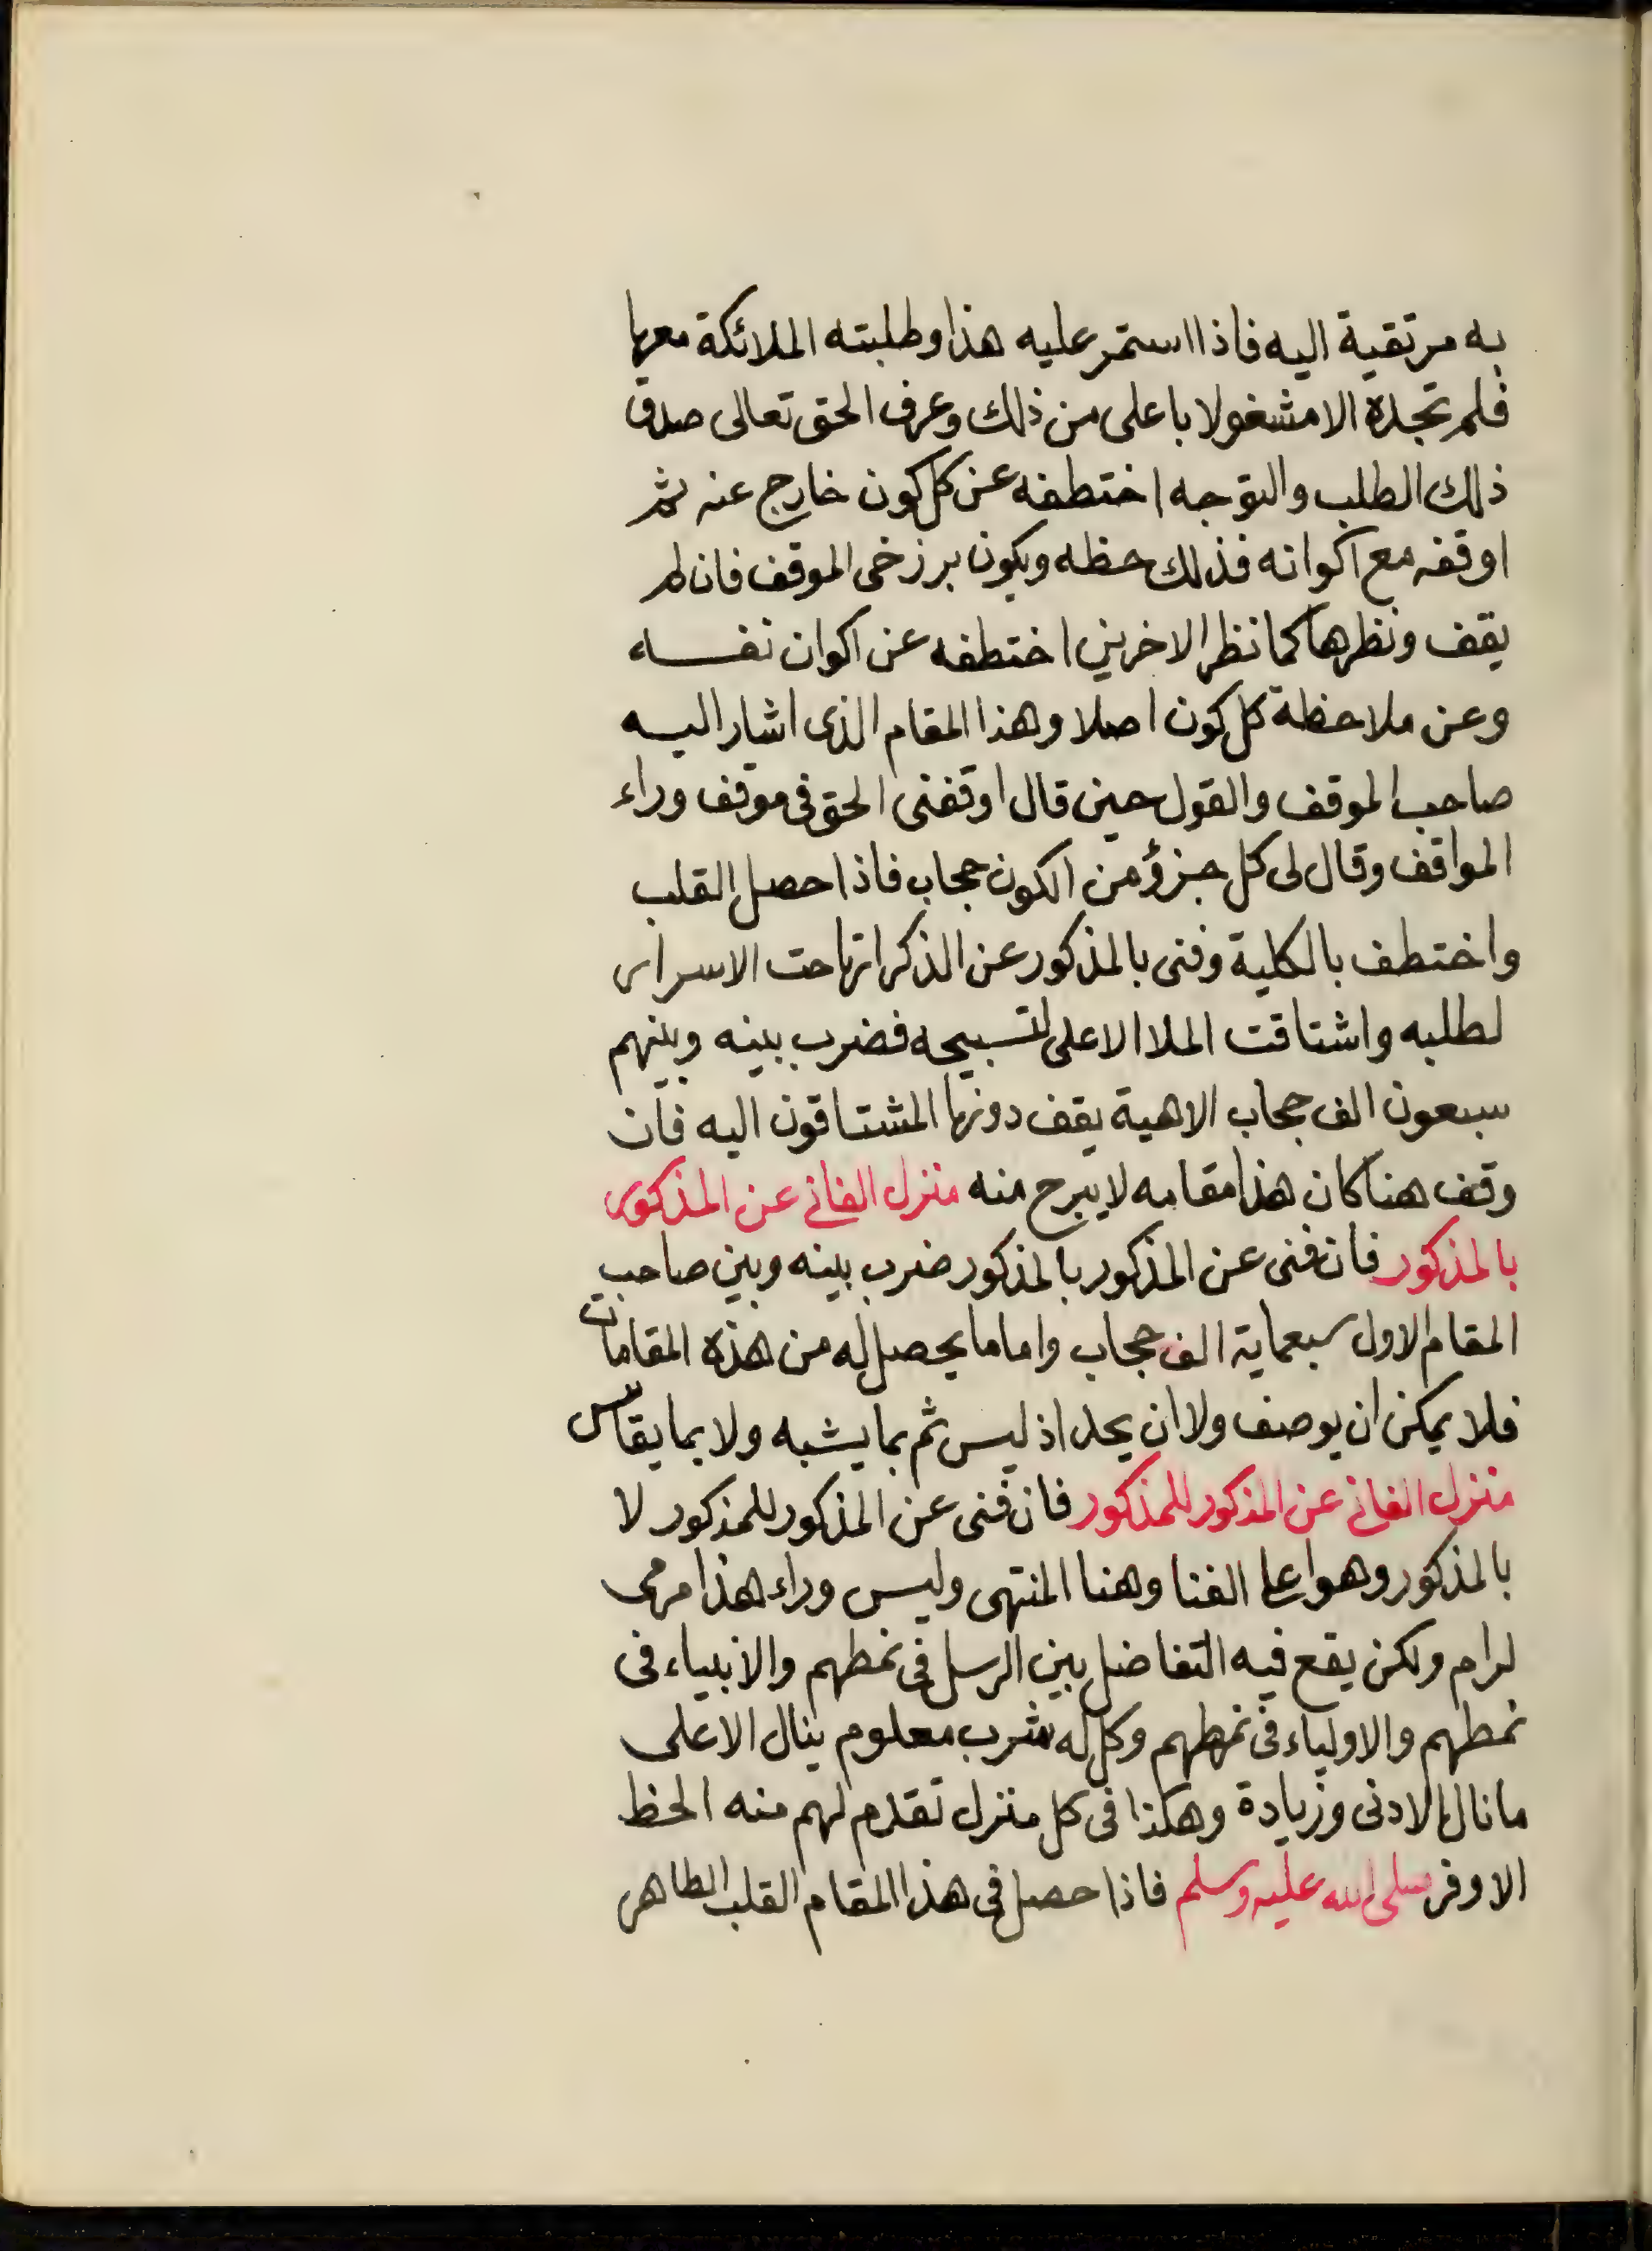 به مرتقية اليه فاذا استمر عليه هذا وطلبته الملائكة معها
فلم تجده الا مشغولا باعلى من ذلك وعرف الحق تعالى صدق
ذلك الطلب والتوجه اختطفه عن كل كون خارج عنه ثم
اوقفه مع اكوانه فذلك حظه ويكون برزخى الموقف فان لم
يقف ونظرها كما نظر الاخرين اختطفه عن اكوان نفسه
وعن ملاحظة كل كون اصلا وهذا المقام الذى اشار اليه
صاحب الموقف والقول حين قال اوقفنى الحق فى موقف وراء
المواقف وقال لى كل جزؤ من الكون حجاب فاذا حصل القلب
واختطف بالكلية وفنى بالمذكور عن الذكر ارتاحت الاسرار
لطلبه واشتاقت الملا الاعلى لتسبيحه فضرب بينه وبينهم
سبعون الف حجاب الاهية يقف دونها المشتاقون اليه فان
وقف هنا كان هذا مقامه لا يبرح منه منزل الفانى عن المذكور
بالمذكور فان فنى عن المذكور بالمذكور ضرب بينه وبين صاحب
المقام الاول سبعماية الف حجاب واما ما يحصل له من هذه المقامات
فلا يمكن ان يوصف ولا ان يحد اذ ليس ثم بما يشبه ولا بما يقاس
منزل الفانى عن المذكور للمذكور فان فنى عن المذكور للمذكور لا
بالمذكور وهو اعلا الفنا وهنا المنتهى وليس وراء هذا مرمى
لرام ولكن يقع فيه التفاضل بين الرسل فى نمطهم والانبياء فى
نمطهم والاولياء فى نمطهم وكل له شرب معلوم ينال الاعلى
ما نال الادنى وزيادة وهكذا فى كل منزل تقدم لهم منه الحظ
الاوفر صلى الله عليه وسلم فاذا حصل فى هذا المقام القلب الطاهر